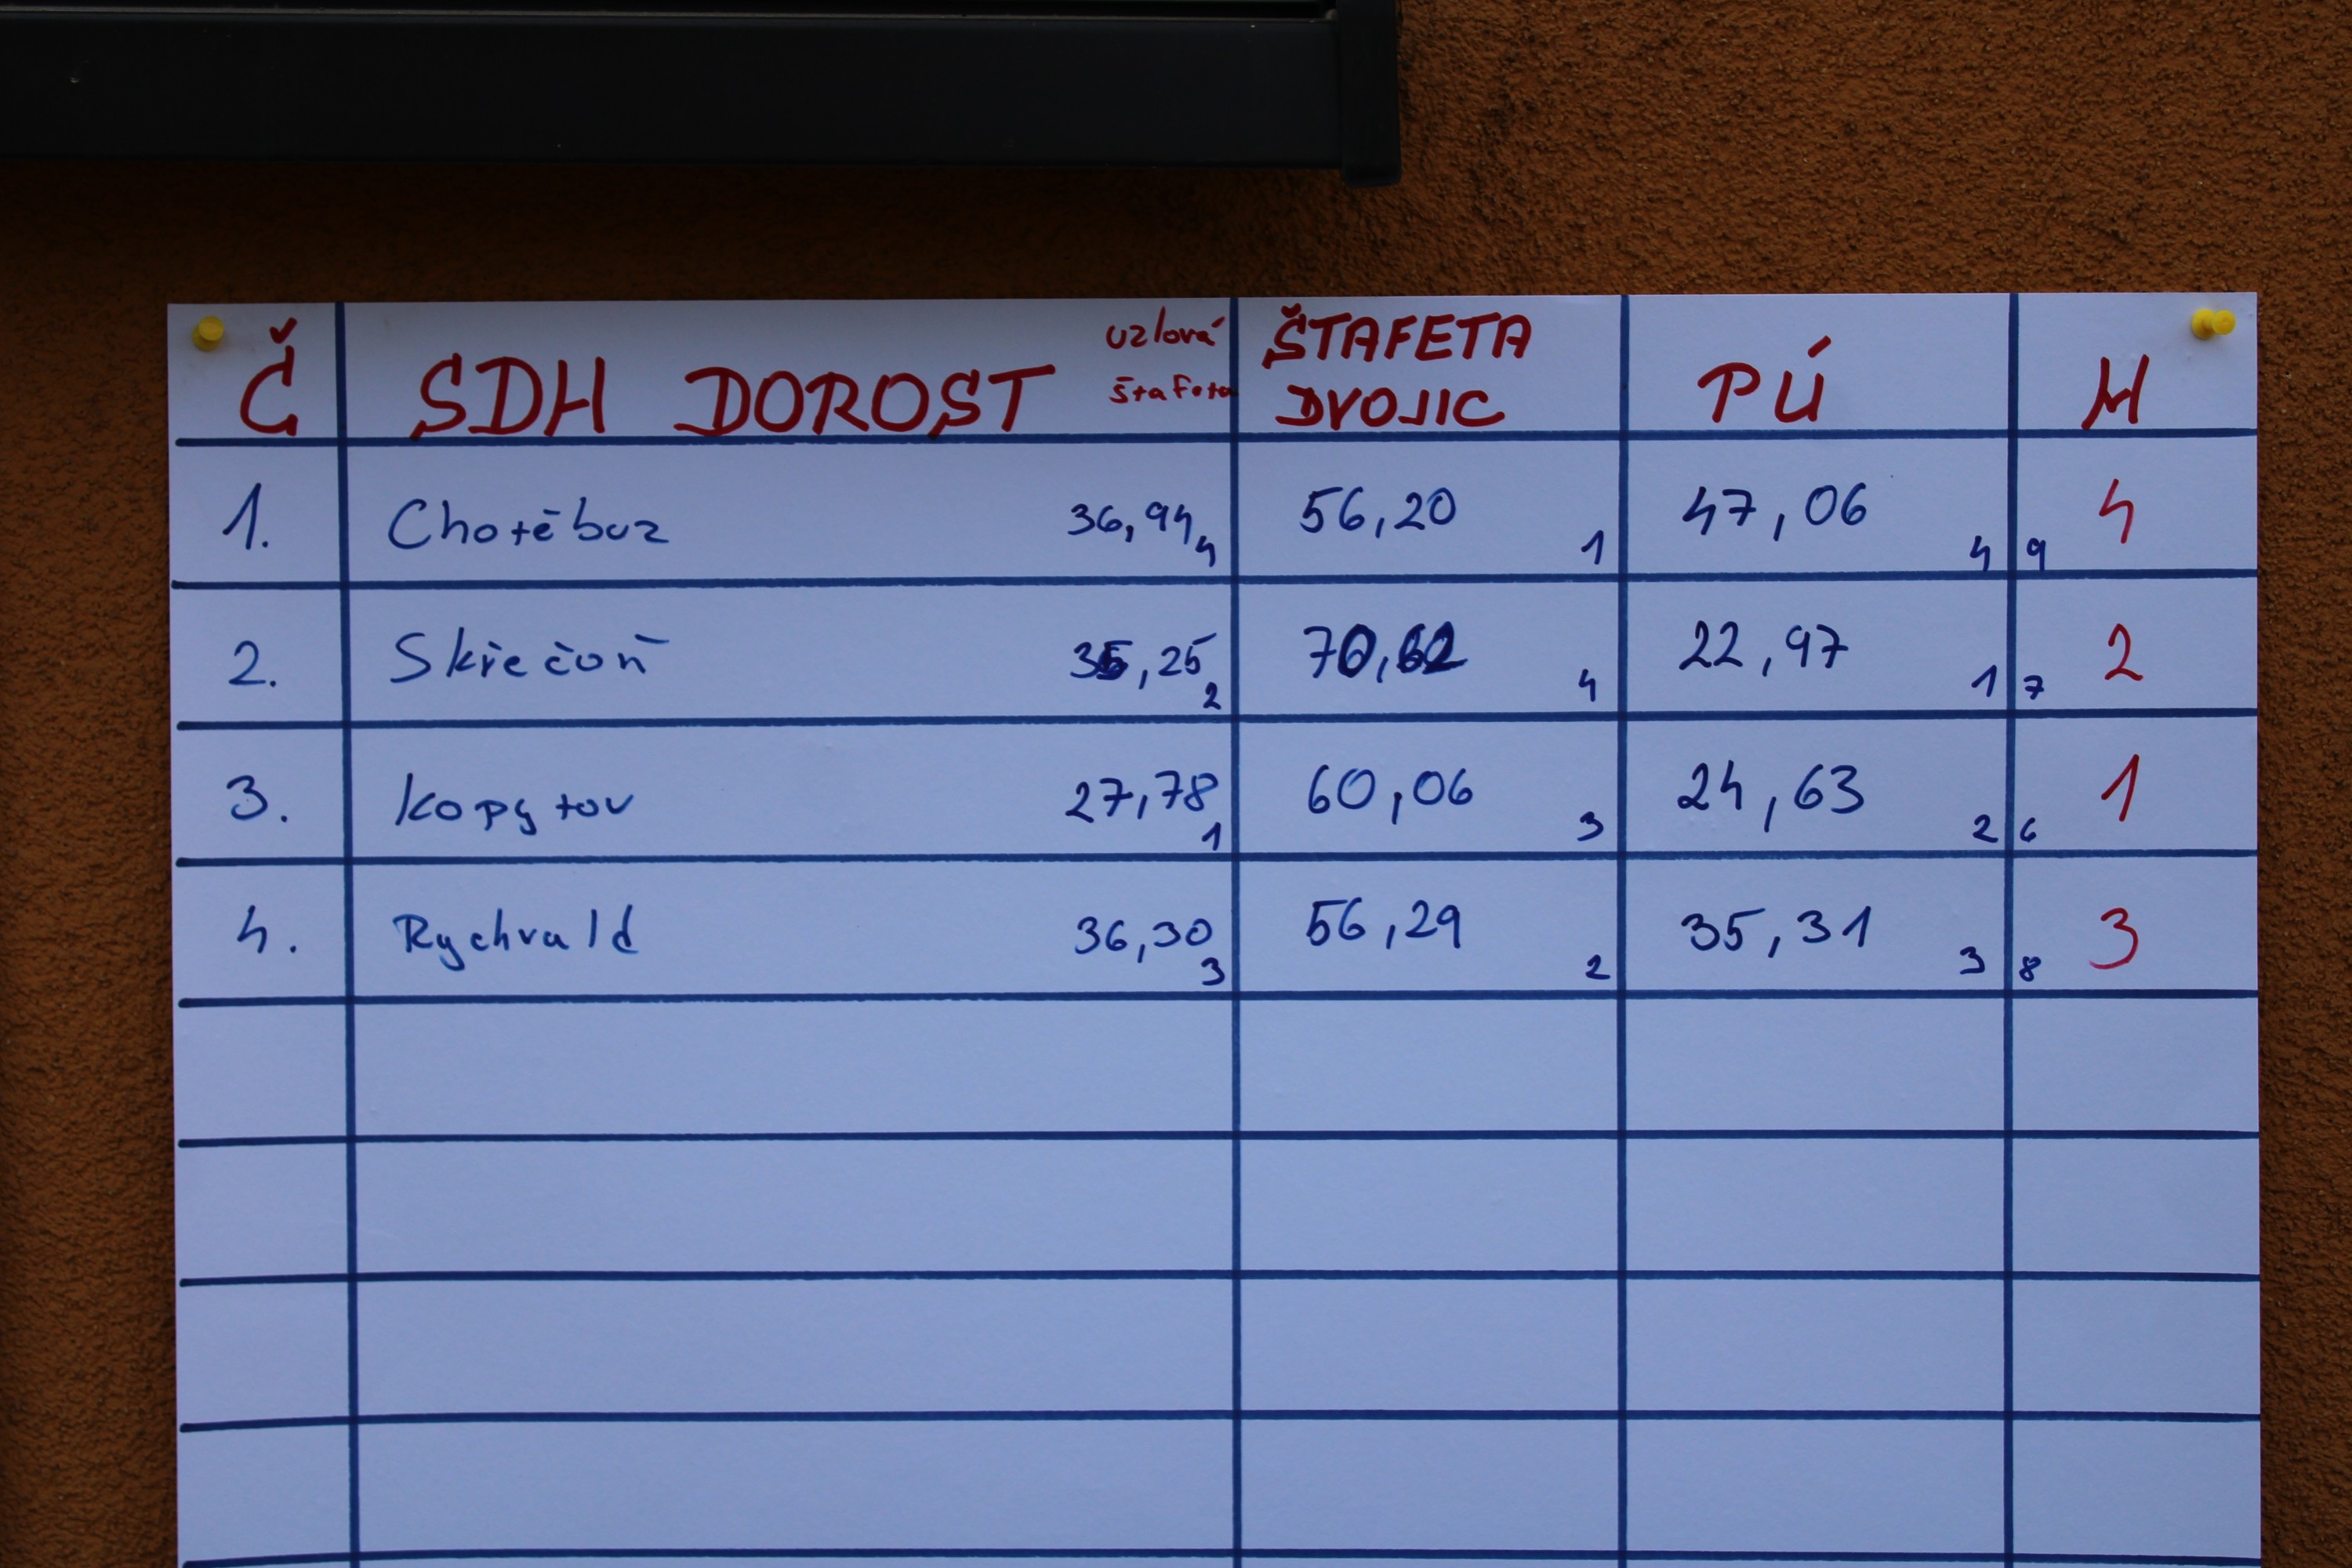 Č SDH DOROST uzlová štafeta ŠTAFETA DVOJIC PÚ M
1. Chotěbuz 36,94 4 56,20 1 47,06 4 9 4
2. Skřečoň 35,25 2 70,62 4 22,97 1 7 2
3. Kopytov 27,78 1 60,06 3 24,63 2 6 1
4. Rychvald 36,30 3 56,29 2 35,31 3 8 3